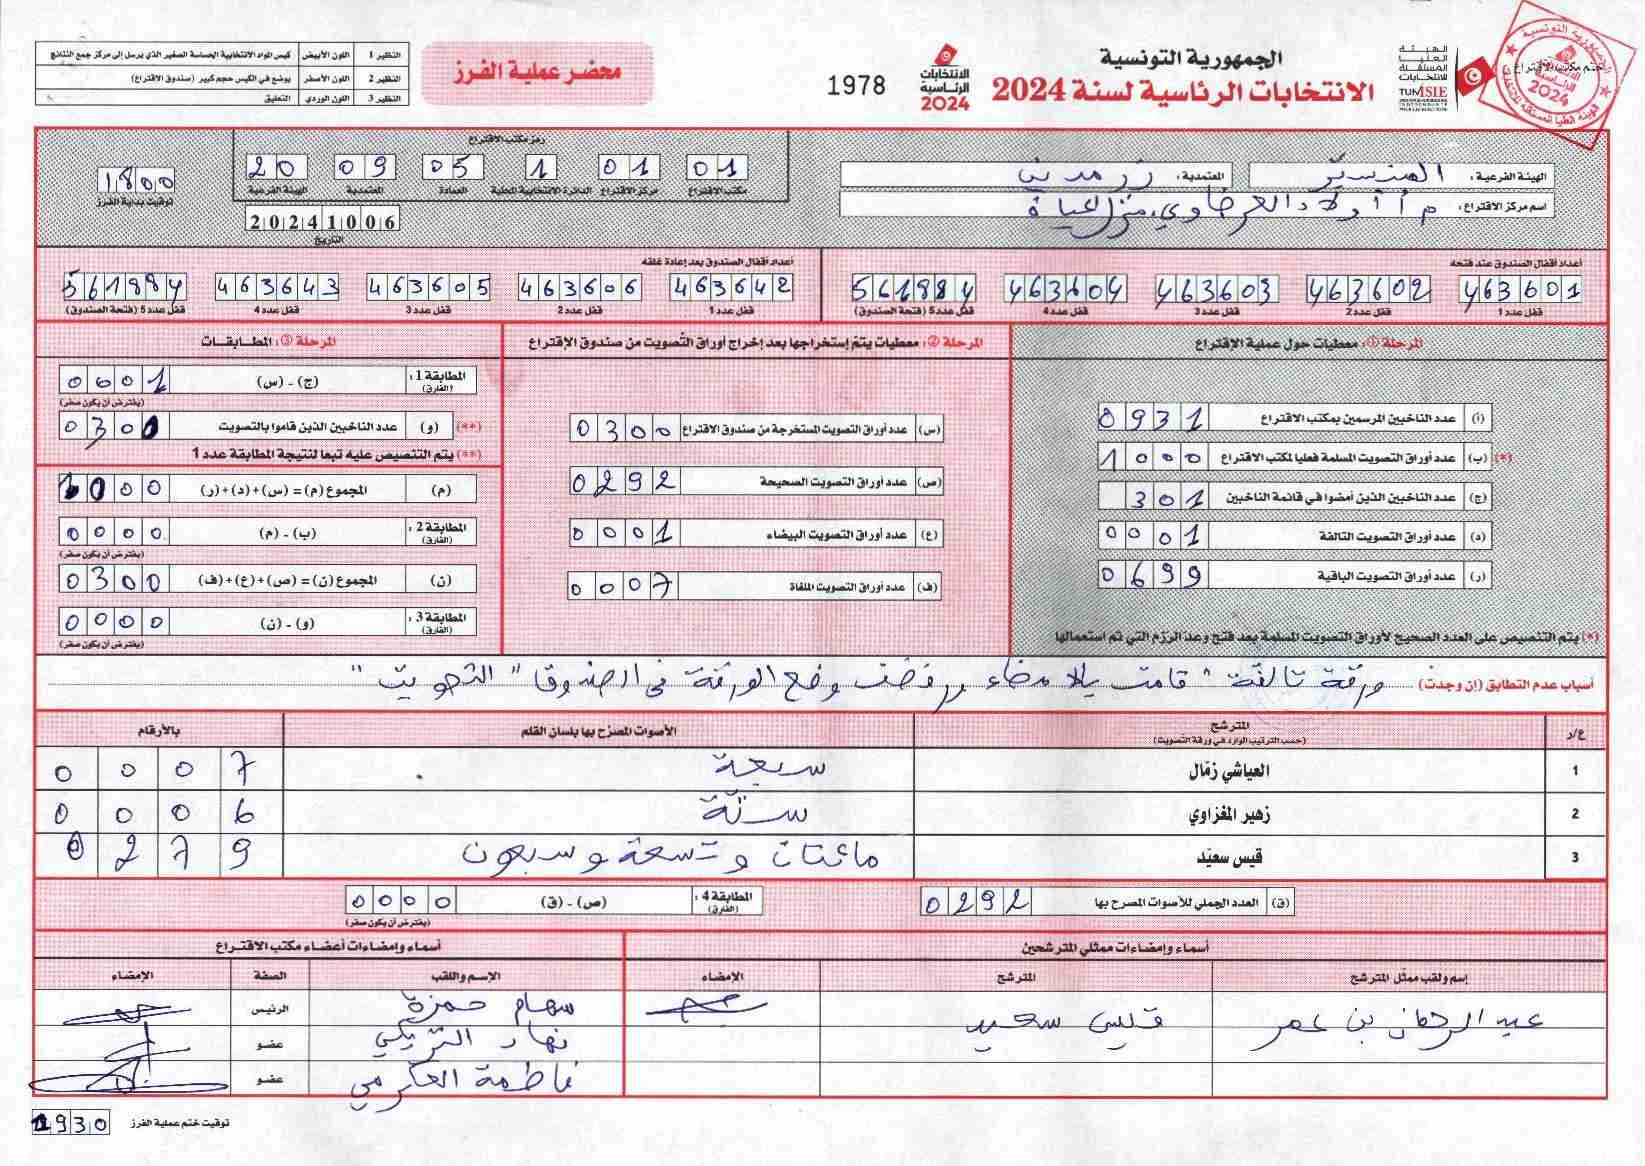 النظير 1 اللون الأبيض كيس المواد الانتخابية الحساسة الصغير الذي يرسل إلى مركز جمع النتائج
النظير 2 اللون الأصفر يوضع في الكيس حجم كبير (صندوق الاقتراع)
النظير 3 اللون الوردي التعليق
محضر عملية الفرز
1978
الانتخابات
الرئاسية
2024
الجمهورية التونسية
الانتخابات الرئاسية لسنة 2024
الهيئة
العليا
المستقلة
للانتخابات
ختم مكتب الاقتراع
الهيئة الفرعية : المنستير المعتمدية : زرمدين
اسم مركز الاقتراع :
رمز مكتب الاقتراع
20 09 05 1 01 01
الهيئة الفرعية المعتمدية العمادة الدائرة الانتخابية المحلية مركز الاقتراع مكتب الاقتراع
20241006
التاريخ
1800
توقيت بداية الفرز
أعداد أقفال الصندوق عند فتحه
463601 463602 463603 463604 561884
قفل عدد1 قفل عدد2 قفل عدد3 قفل عدد4 قفل عدد5 (فتحة الصندوق)
أعداد أقفال الصندوق بعد إعادة غلقه
463642 463606 463605 463643 561884
قفل عدد1 قفل عدد2 قفل عدد3 قفل عدد4 قفل عدد5 (فتحة الصندوق)
المرحلة ①: معطيات حول عملية الإقتراع
(أ) عدد الناخبين المرسمين بمكتب الاقتراع 0931
(*) (ب) عدد أوراق التصويت المسلمة فعليا لمكتب الاقتراع 1000
(ج) عدد الناخبين الذين أمضوا في قائمة الناخبين 301
(د) عدد أوراق التصويت التالفة 0001
(ر) عدد أوراق التصويت الباقية 0699
(*) يتم التنصيص على العدد الصحيح لأوراق التصويت المسلمة بعد فتح وعد الرزم التي تم استعمالها
المرحلة ②: معطيات يتم إستخراجها بعد إخراج أوراق التصويت من صندوق الإقتراع
(س) عدد أوراق التصويت المستخرجة من صندوق الاقتراع 0300
(ص) عدد أوراق التصويت الصحيحة 0292
(ع) عدد أوراق التصويت البيضاء 0001
(ف) عدد أوراق التصويت الملغاة 0007
المرحلة ③: المطابقات
المطابقة 1 : (الفارق) (ج) - (س) 0001
(يفترض أن يكون صفر)
(**) (و) عدد الناخبين الذين قاموا بالتصويت 0300
(**) يتم التنصيص عليه تبعا لنتيجة المطابقة عدد 1
(م) المجموع (م) = (س)+(د)+(ر) 1000
المطابقة 2 : (الفارق) (ب) - (م) 0000
(يفترض أن يكون صفر)
(ن) المجموع (ن) = (ص)+(ع)+(ف) 0300
المطابقة 3 : (الفارق) (و) - (ن) 0000
(يفترض أن يكون صفر)
أسباب عدم التطابق (إن وجدت) ورقة تالفة " قامت بالامضاء ورفضت وضع الورقة في الصندوق " التصويت "
ع/د المترشح (حسب الترتيب الوارد في ورقة التصويت) الأصوات المصرّح بها بلسان القلم بالأرقام
1 العياشي زمّال سبعة 0007
2 زهير المغزاوي ستّة 0006
3 قيس سعيّد مائتان وتسعة وسبعون 0279
(ق) العدد الجملي للأصوات المصرح بها 0292 المطابقة 4 : (الفارق) (ص) - (ق) 0000
(يفترض أن يكون صفر)
أسماء وإمضاءات ممثلي المترشحين
إسم ولقب ممثّل المترشح المترشح الإمضاء
عبد الرحمان بن عمر قيس سعيد
أسماء وإمضاءات أعضاء مكتب الاقتراع
الإسم واللقب الصفة الإمضاء
سهام حمزة الرئيس
نهاد التريكي عضو
فاطمة العكرمي عضو
توقيت ختم عملية الفرز 1930